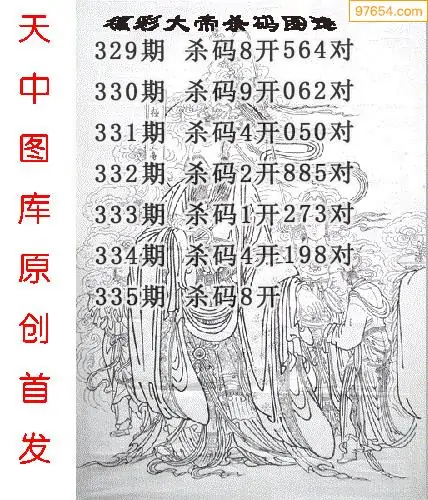 97654.com
福彩大帝杀码图迷
329期 杀码8开564对
330期 杀码9开062对
331期 杀码4开050对
332期 杀码2开885对
333期 杀码1开273对
334期 杀码4开198对
335期 杀码8开
天中图库原创首发